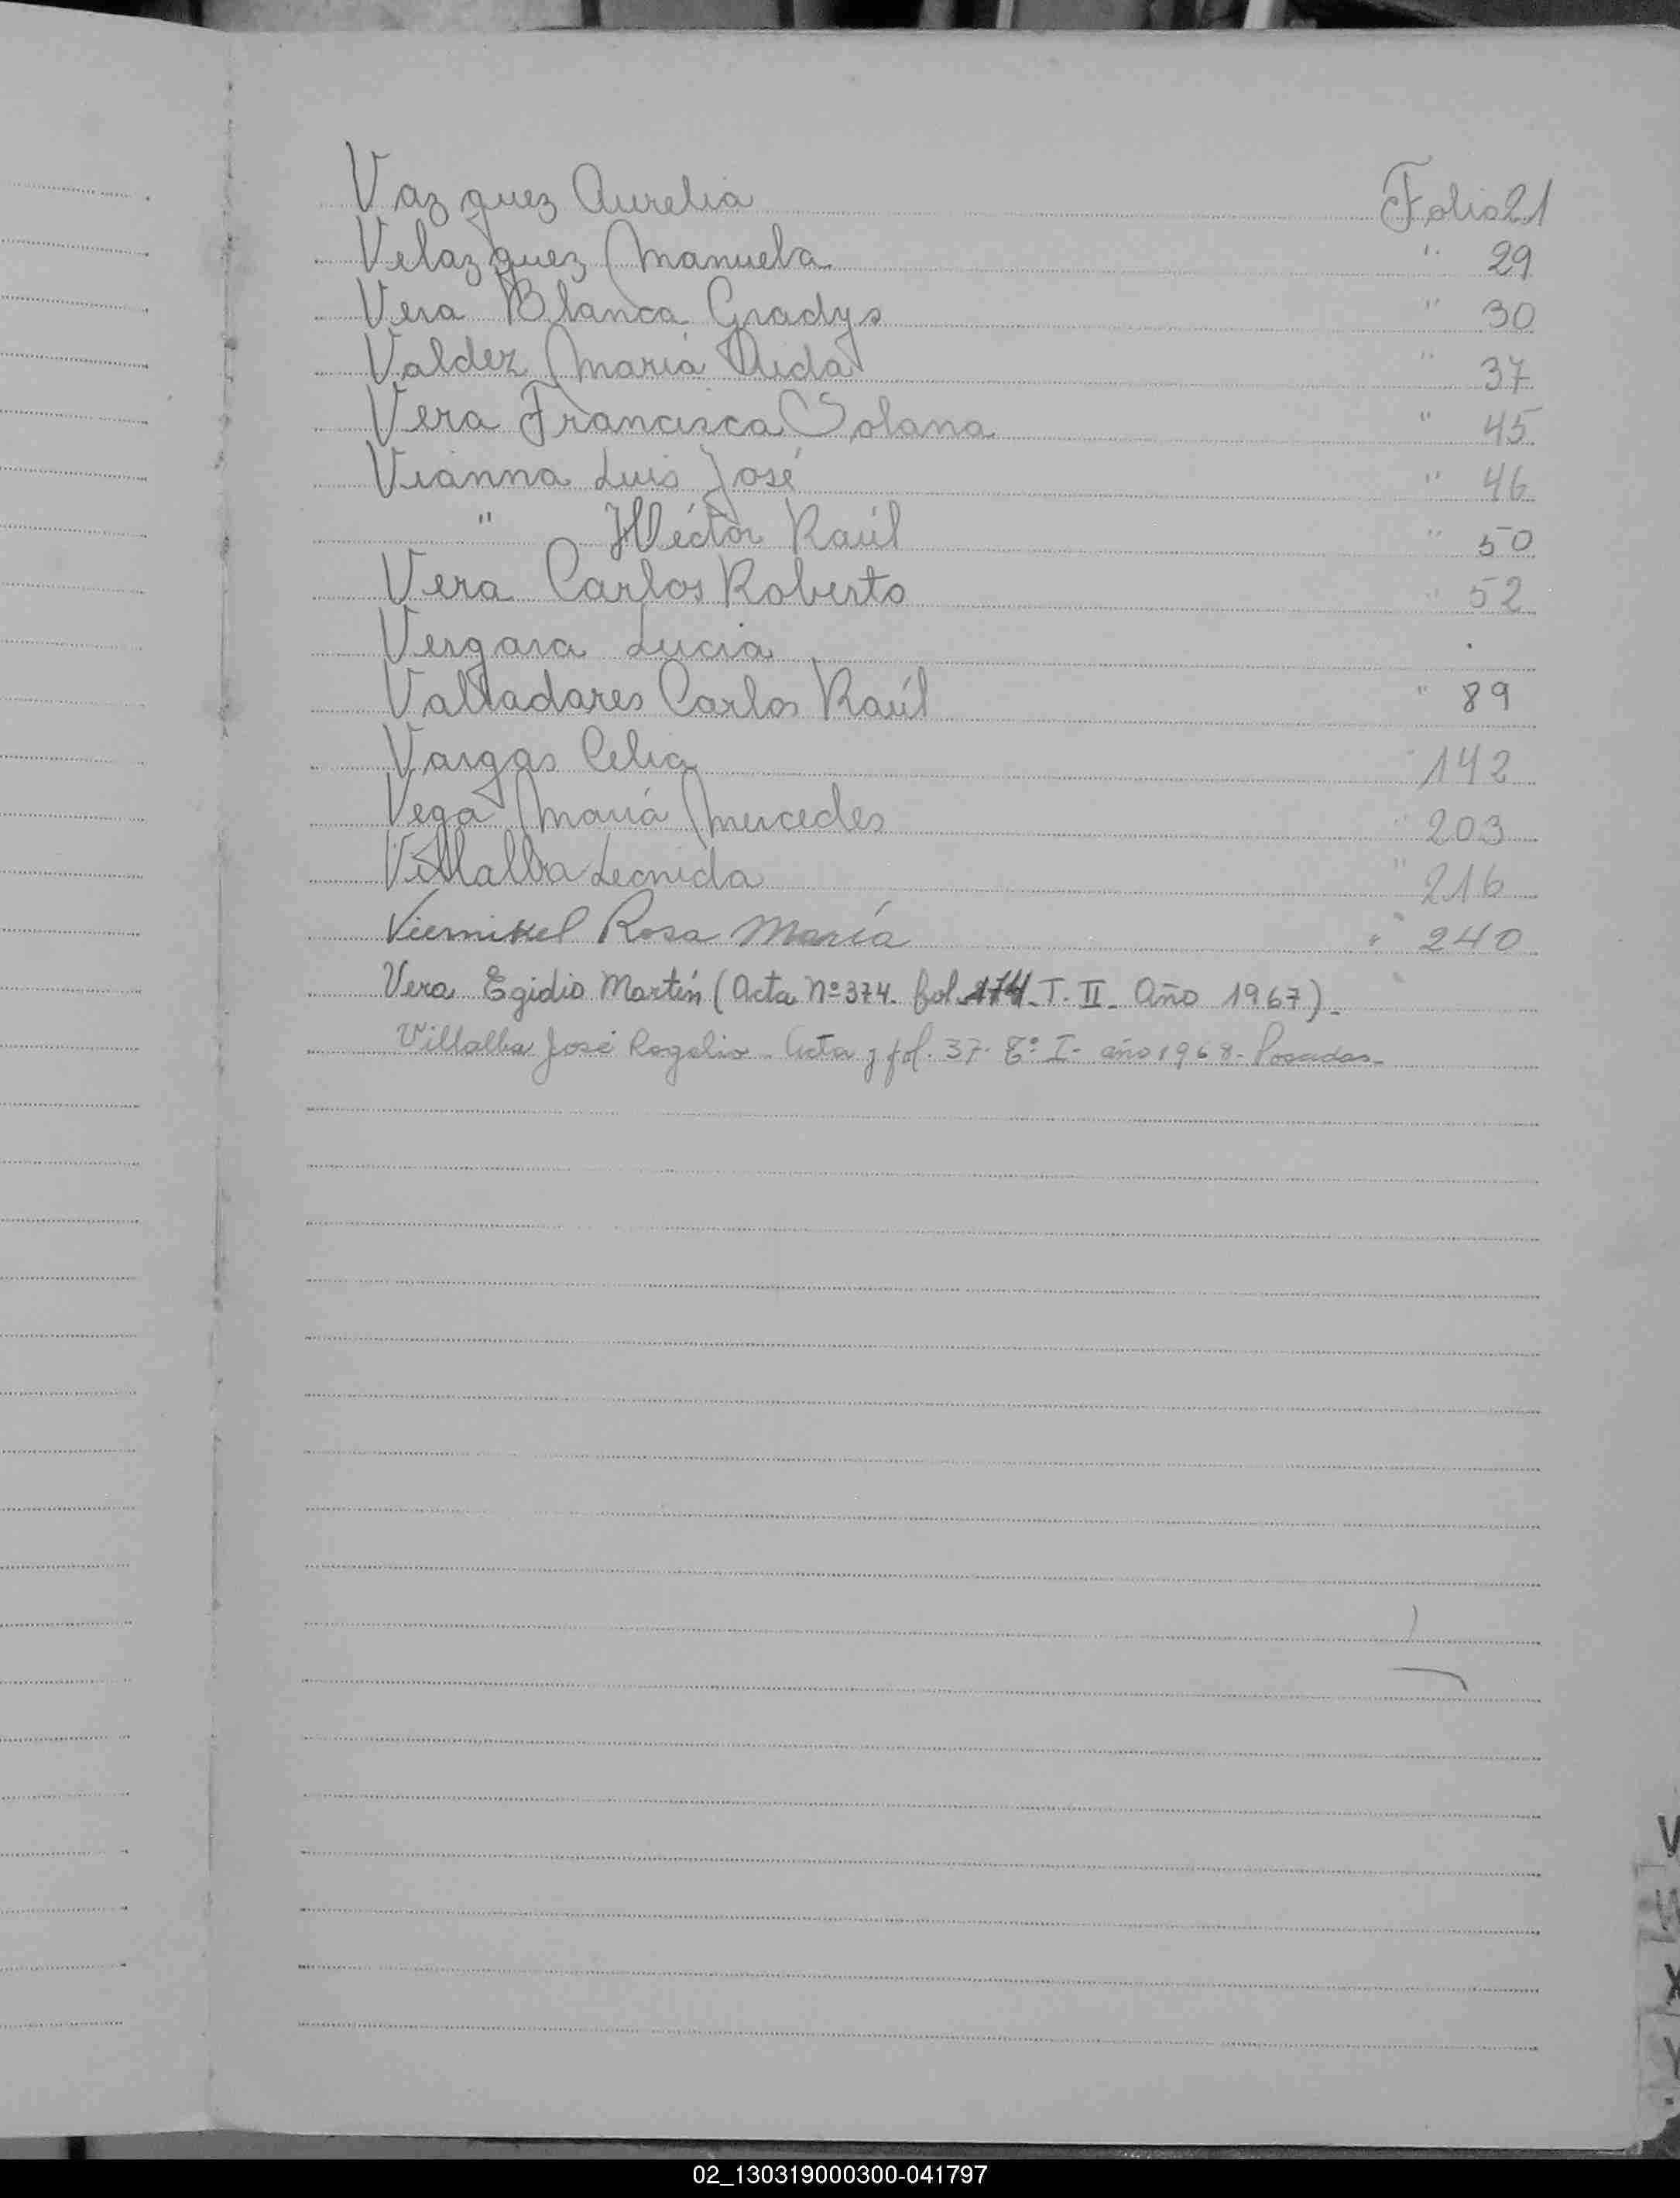 Vazquez Aurelia Folio 21
Velazquez Manuela " 29
Vera Blanca Gradys " 30
Valdez María Aida " 37
Vera Francisca Solana " 45
Vianna Luis José " 46
" Héctor Raúl " 50
Vera Carlos Roberto " 52
Vergara Lucia .
Valladares Carlos Raúl " 89
Vargas Celia " 142
Vega María Mercedes " 203
Villalba Leonida " 216
Viernikel Rosa María " 240
Vera Egidio Martín (Acta Nº 374. fol. 174. T. II. Año 1967).
Villalba José Rogelio. Acta y fol. 37. Tº I- año 1968- Posadas-
V
W
X
Y
02_130319000300-041797